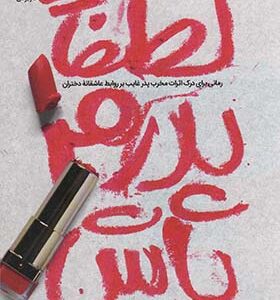 لطفاً
رمانی برای درک اثرات مخرب پدر غایب بر روابط عاشقانه دختران
پدرم
باش